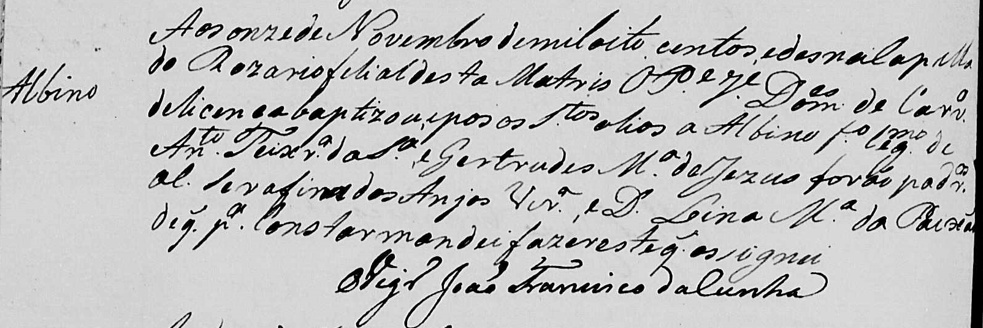 Albino
Aos onze de Novembro de mil oito centos, e des na Capella
do Rozario filial desta Matris o P.e Je. Dom.es de Carv.o
de licença baptizou, e pos os S.tos olios a Albino f.o leg.mo de
An.to Teix.ra da S.a, e Gertrudes M.a de Jezus forão padr.os
al. Serafim dos Anjos Vir.a, e D. Leina M.a da Paixão
de q. p.a constar mandei fazer este q. assignei
O Vig.r João Francisco da Cunha